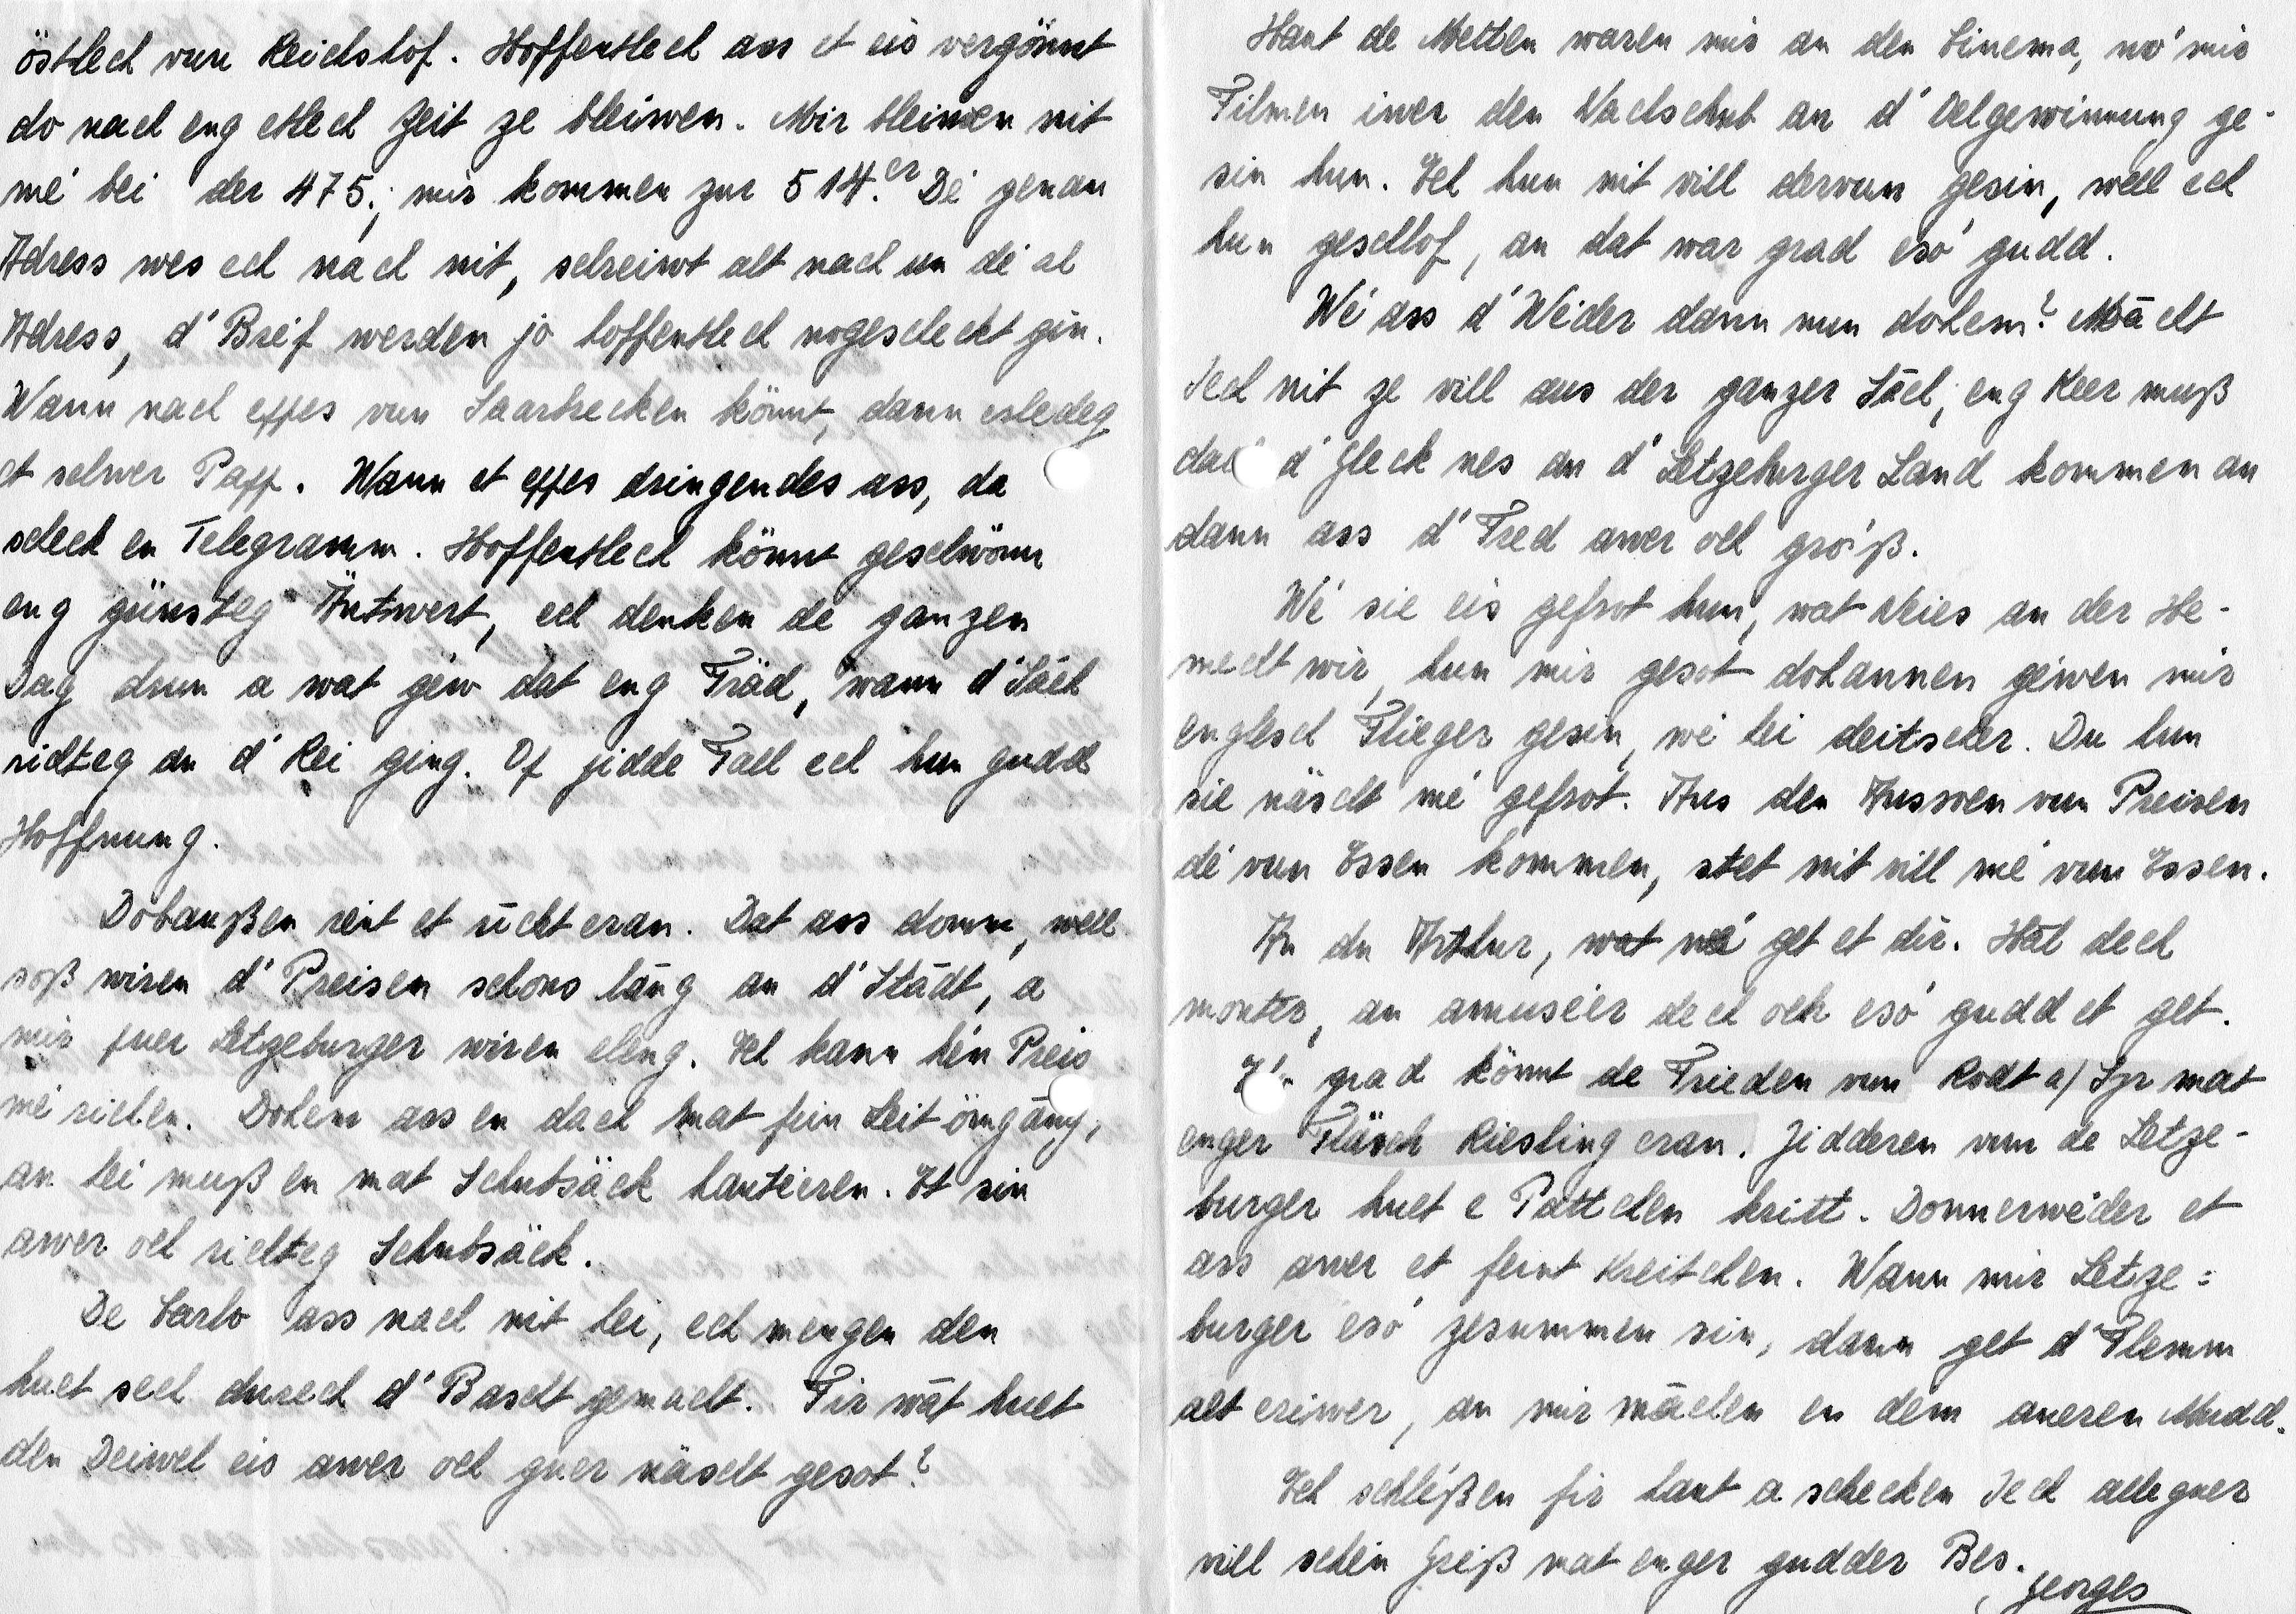 östlech vun Reichshof. Hoffentlech ass et eis vergönnt
do nach eng etlech Zeit ze bleiwen. Mir bleiwen nit
mé bei der 475.; mir kommen zur 514.er Dé genau
Adress wes ech nach nit, schreiwt alt nach un dé al
Adress, d' Bréf werden jo hoffentlech nogescheckt gin.
Wann nach eppes vun Saarbrecken könnt, dann erledeg
et selwer Papp. Wann et eppes dringendes ass, da
scheck en Telegramm. Hoffentlech könnt geschwönn
eng günsteg Äntwert, ech denken de ganzen
Dag drun a wat géw dat eng Fräd, wann d'Säch
richteg an d' Rei ging. Of jidde Fall ech hun gudd
Hoffnung.
Dobaußen rént et ücht eran. Dat ass domm, well
soß wiren d' Preisen schons läng an d' Städt, a
mir fuer Letzeburger wiren eleng. Ech kann kén Preis
mé richen. Dohem ass en dach mat fein Leit ömgäng,
an hei muß en mat Schubsäck hantéieren. Et sin
awer och richteg Schubsäck.
De Carlo ass nach nit hei, ech mengen den
huet sech durech d' Bascht gemacht. Fir wät huet
den Deiwel eis awer och guer näscht gesot?
Haut de Metten waren mir an den Cinema, wó mir
Filmen iwer den Wachschub an d' Oelgewinnung ge-
sin hun. Ech hun nit vill dervun gesin, well ech
hun geschlof, an dat war grad esó gudd.
Wé ass d' Wéder dann nun dohem? Mächt
Iech nit ze vill aus der ganzer Säch, eng Keer muß
d' Gleck nes an d' Letzeburger Land kommen an
dann ass d' Fred awer och gró'ß.
Wé sie eis gefrot hun, wat Neies an der He-
mecht wir, hun mir gesot dohannen géwen mir
englesch Flieger gesin, wé hei deitscher. Du hun
sie näscht mé gefrot. Aus den Aussoen vun Preisen
dé vun Essen kommen, stet nit vill mé vun Essen.
An du Arthur, wat wé get et dir. Hal dech
monter, an amuséier dech och esó gudd et get.
grad könnt de Frieden vun Rodt a/ Syr mat
enger Fläsch Riesling eran. Jidderen vun de Letze-
burger huet e Pättchen kritt. Donnerwéder et
ass awer et feint Kreitchen. Wann mir Letze=
burger esó zesummen sin, dann get d' Flemm
alt eriwer, an mir mächen en dem aneren Mudd.
Ech schléßen fir haut a schecken Iech alleguer
vill schéin Gréiß mat enger gudder Bes.
Georges